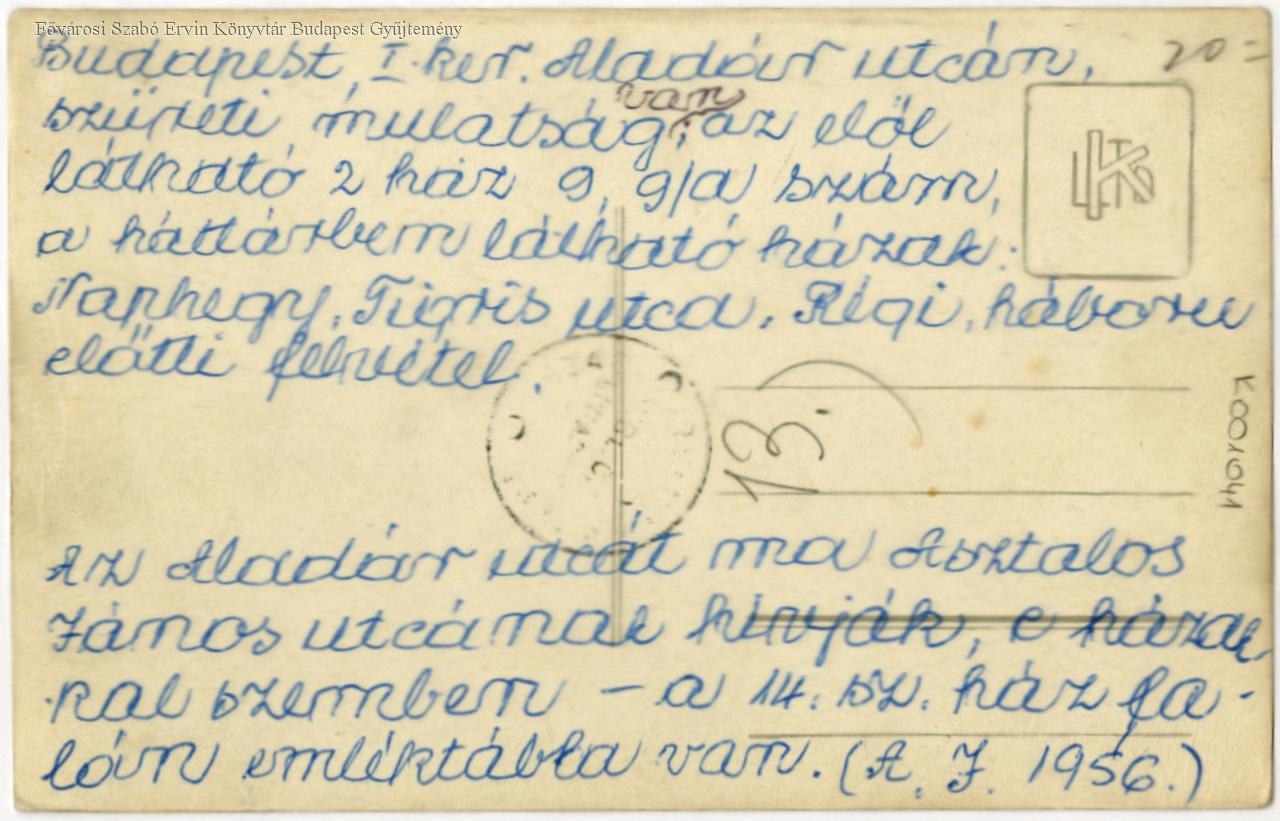 Fővárosi Szabó Ervin Könyvtár Budapest Gyűjtemény
Budapest, I. ker. Aladár utcán,
20=
szüreti mulatság van; az elől
látható 2 ház 9, 9/a szám,
a háttárben látható házak:
Naphegy, Tigris utca. Régi, háboru
előtti felvétel.
13.
K001641
Az Aladár utcát ma Asztalos
János utcának hívják, e házak-
kal szemben – a 14. sz. ház fa-
lán emléktábla van. (A. J. 1956.)